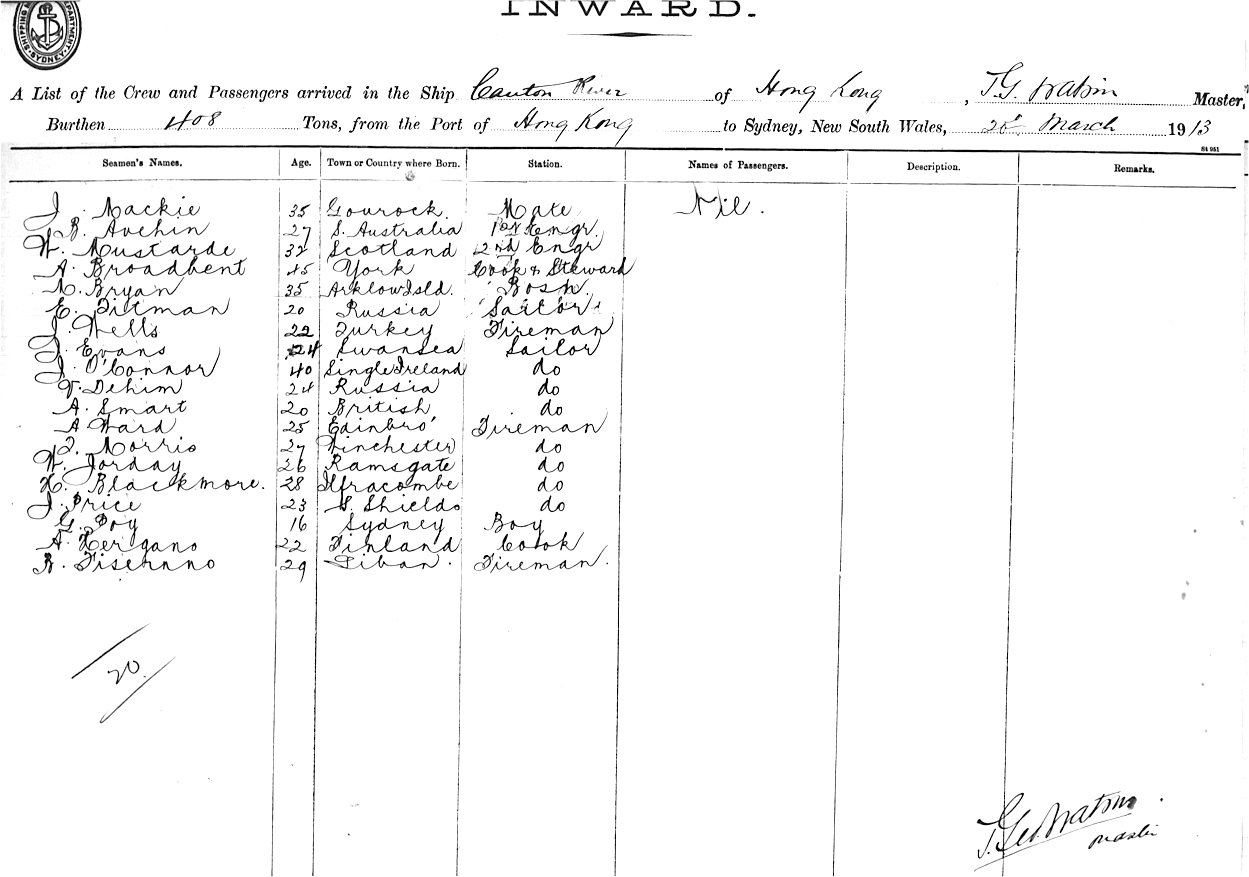 INWARD.
SHIPPING DEPARTMENT. SYDNEY
A List of the Crew and Passengers arrived in the Ship Canton River of Hong Kong, T. G. Watson Master,
Burthen 408 Tons, from the Port of Hong Kong to Sydney, New South Wales, March 1913
St 951
Seamen's Names. Age. Town or Country where Born. Station. Names of Passengers. Description. Remarks.
J. Mackie 35 Gourock. Mate Nil.
B. Auchin 27 S. Australia 1st Engr.
W. Mustarde 32 Scotland 2nd Engr
A. Broadbent 45 York Cook & Steward
M. Bryan 35 Arklow Isld. Bosn.
E. Pitman 20 Russia Sailor
J. Wells 22 Turkey Fireman
J. Evans 24 Swansea Sailor
J. O'Connor 40 Single Ireland do
V. Dehim 24 Russia do
A. Smart 20 British do
A Ward 25 Edinbro' Fireman
T. Morris 27 Winchester do
W. Jorday 26 Ramsgate do
H. Blackmore. 28 Ilfracombe do
J. Price 23 S. Shields do
G. Poy 16 Sydney Boy
A. Hergano 22 Finland Cook
R. Fisernno 29 Liban. Fireman.
20.
T. Geo. Watson.
Master